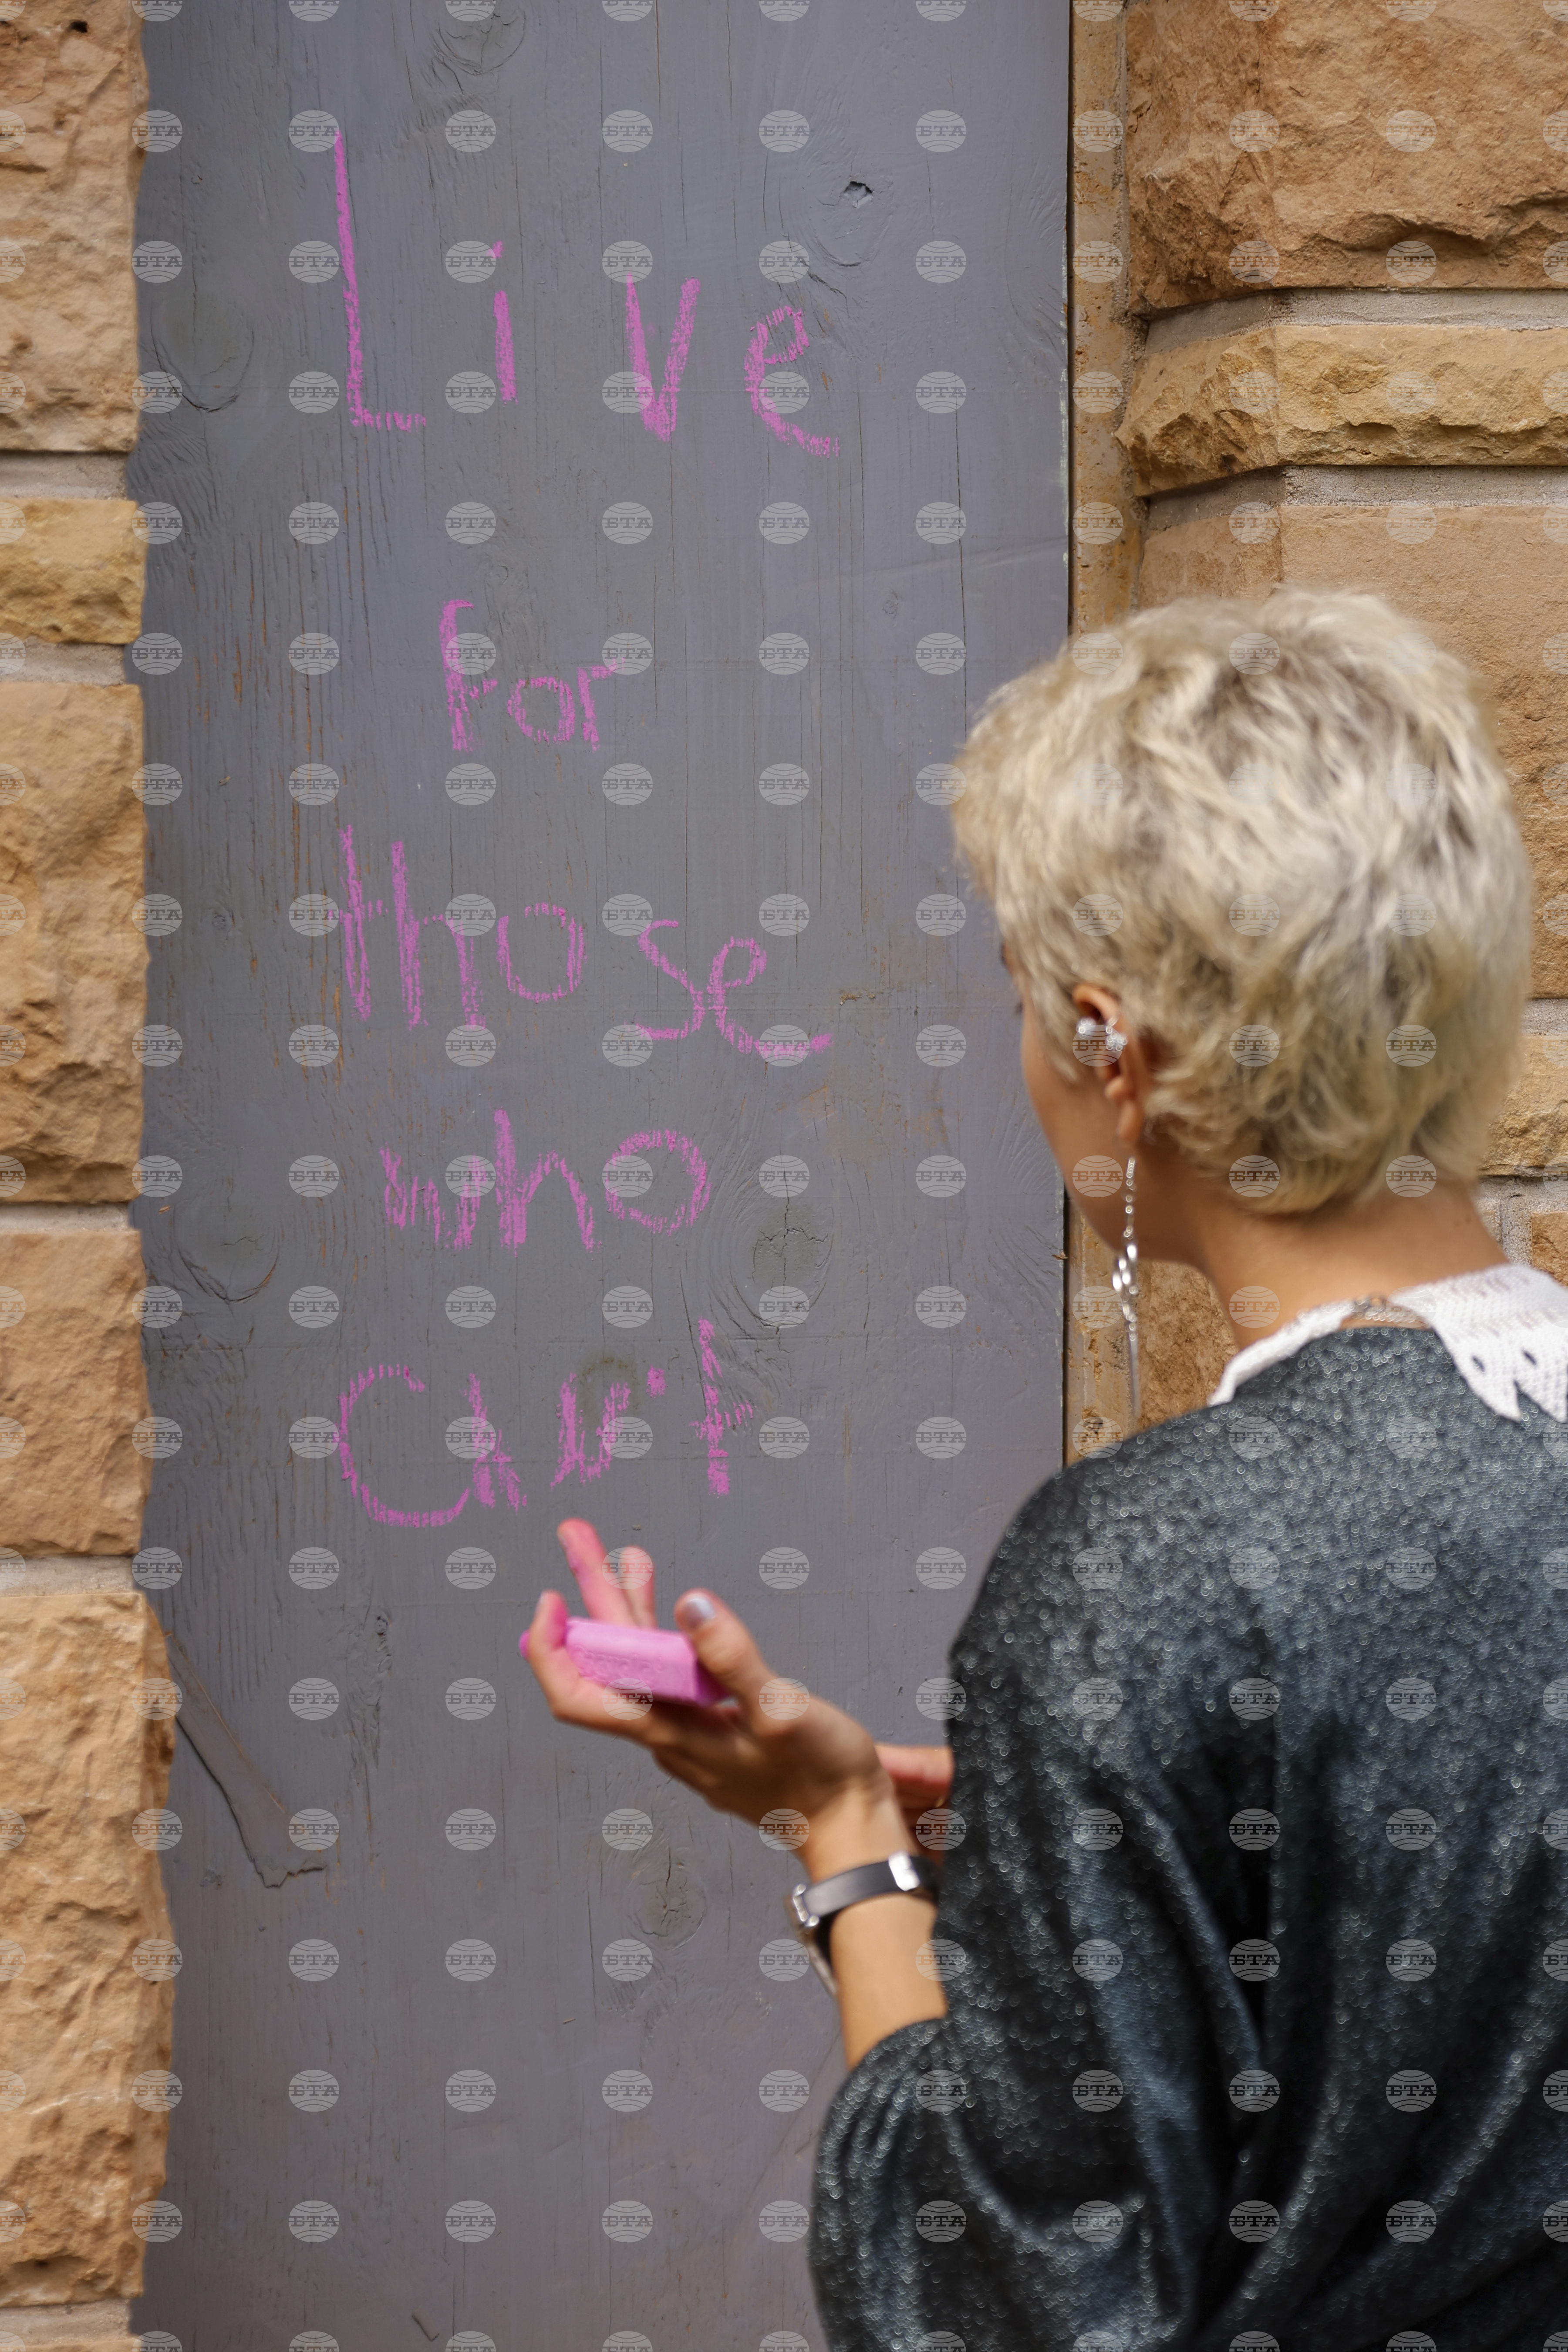 Live
for
those
who
can't